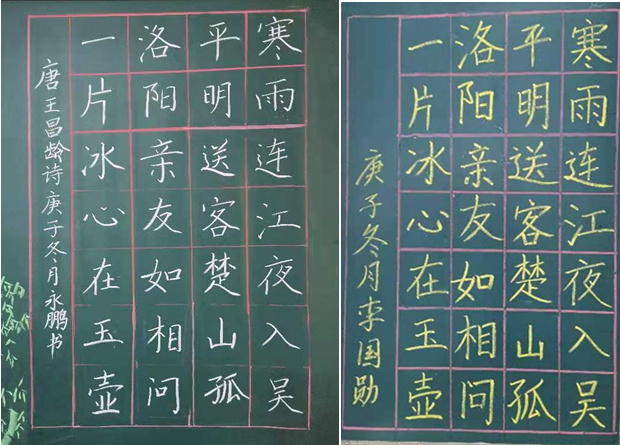 寒雨连江夜入吴
平明送客楚山孤
洛阳亲友如相问
一片冰心在玉壶
唐王昌龄诗庚子冬月永鹏书
寒雨连江夜入吴
平明送客楚山孤
洛阳亲友如相问
一片冰心在玉壶
庚子冬月李国勋